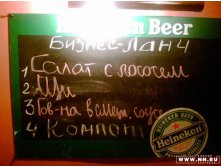 Heineken Beer
Бизнес-Ланч
1 Салат с лососем
2 Щи
3 Гов-на в смет. соусе
4 Компот
HEINEKEN BEER
Heineken
WWW.NN.RU